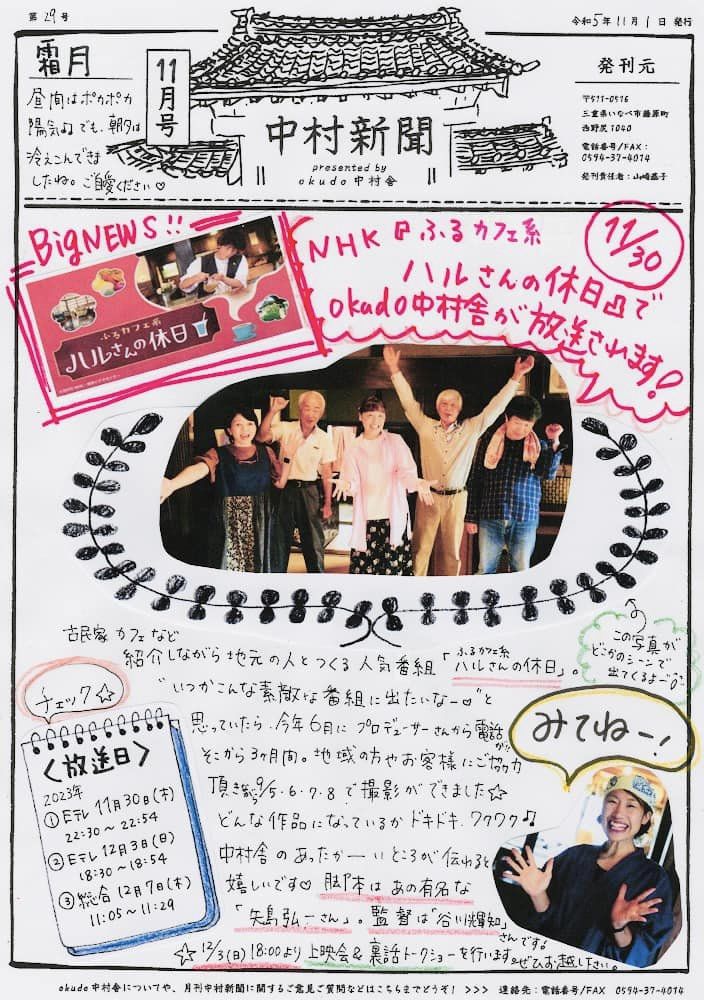 第29号
令和5年11月1日 発行
霜月
昼間はポカポカ
陽気でも、朝夕は
冷えこんできま
したね。ご自愛ください♡
11月号
中村新聞
presented by
okudo中村舎
発刊元
〒511-0516
三重県いなべ市藤原町
西野尻1040
電話番号/FAX:
0594-37-4014
発刊責任者:山﨑基子
BigNEWS!!
11/30
NHK『ふるカフェ系
ハルさんの休日』で
okudo中村舎が放送されます!
ふるカフェ系
ハルさんの休日
この写真が
どこかのシーンで
出てくるよー
古民家カフェなど
紹介しながら地元の人とつくる人気番組「ふるカフェ系 ハルさんの休日」。
"いつかこんな素敵な番組に出たいなー♡"と
思っていたら、今年6月にプロデューサーさんから電話が!!
そこから3ヶ月間。地域の方やお客様にご協力
頂きながら9/5・6・7・8で撮影ができました☆
どんな作品になっているかドキドキ、ワクワク♫
中村舎のあったかーいところが伝わると
嬉しいです♡ 脚本はあの有名な
「矢島弘一さん」。監督は「谷川輝知」さんです!
☆12/3(日)18:00より上映会&裏話トークショーを行います。ぜひお越し下さい。
チェック☆
<放送日>
2023年
①Eテレ 11月30日(木)
22:30~22:54
②Eテレ 12月3日(日)
18:30~18:54
③総合 12月7日(木)
11:05~11:29
みてねー!
okudo中村舎についてや、月刊中村新聞に関するご意見ご質問などはこちらまでどうぞ! >>> 連絡先:電話番号/FAX 0594-37-4014